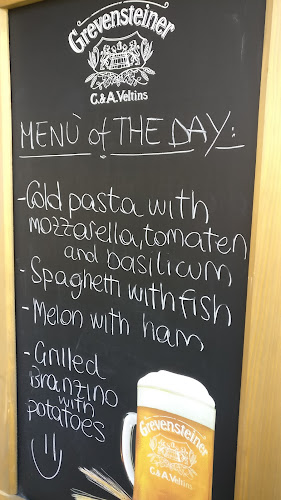 Grevensteiner
C.&A. Veltins
MENÙ of THE DAY:
-Cold pasta with
mozzarella, tomaten
and basilicum
- Spaghetti with fish
- Melon with ham
- Grilled
Branzino
with
potatoes
Grevensteiner
C.&A. Veltins